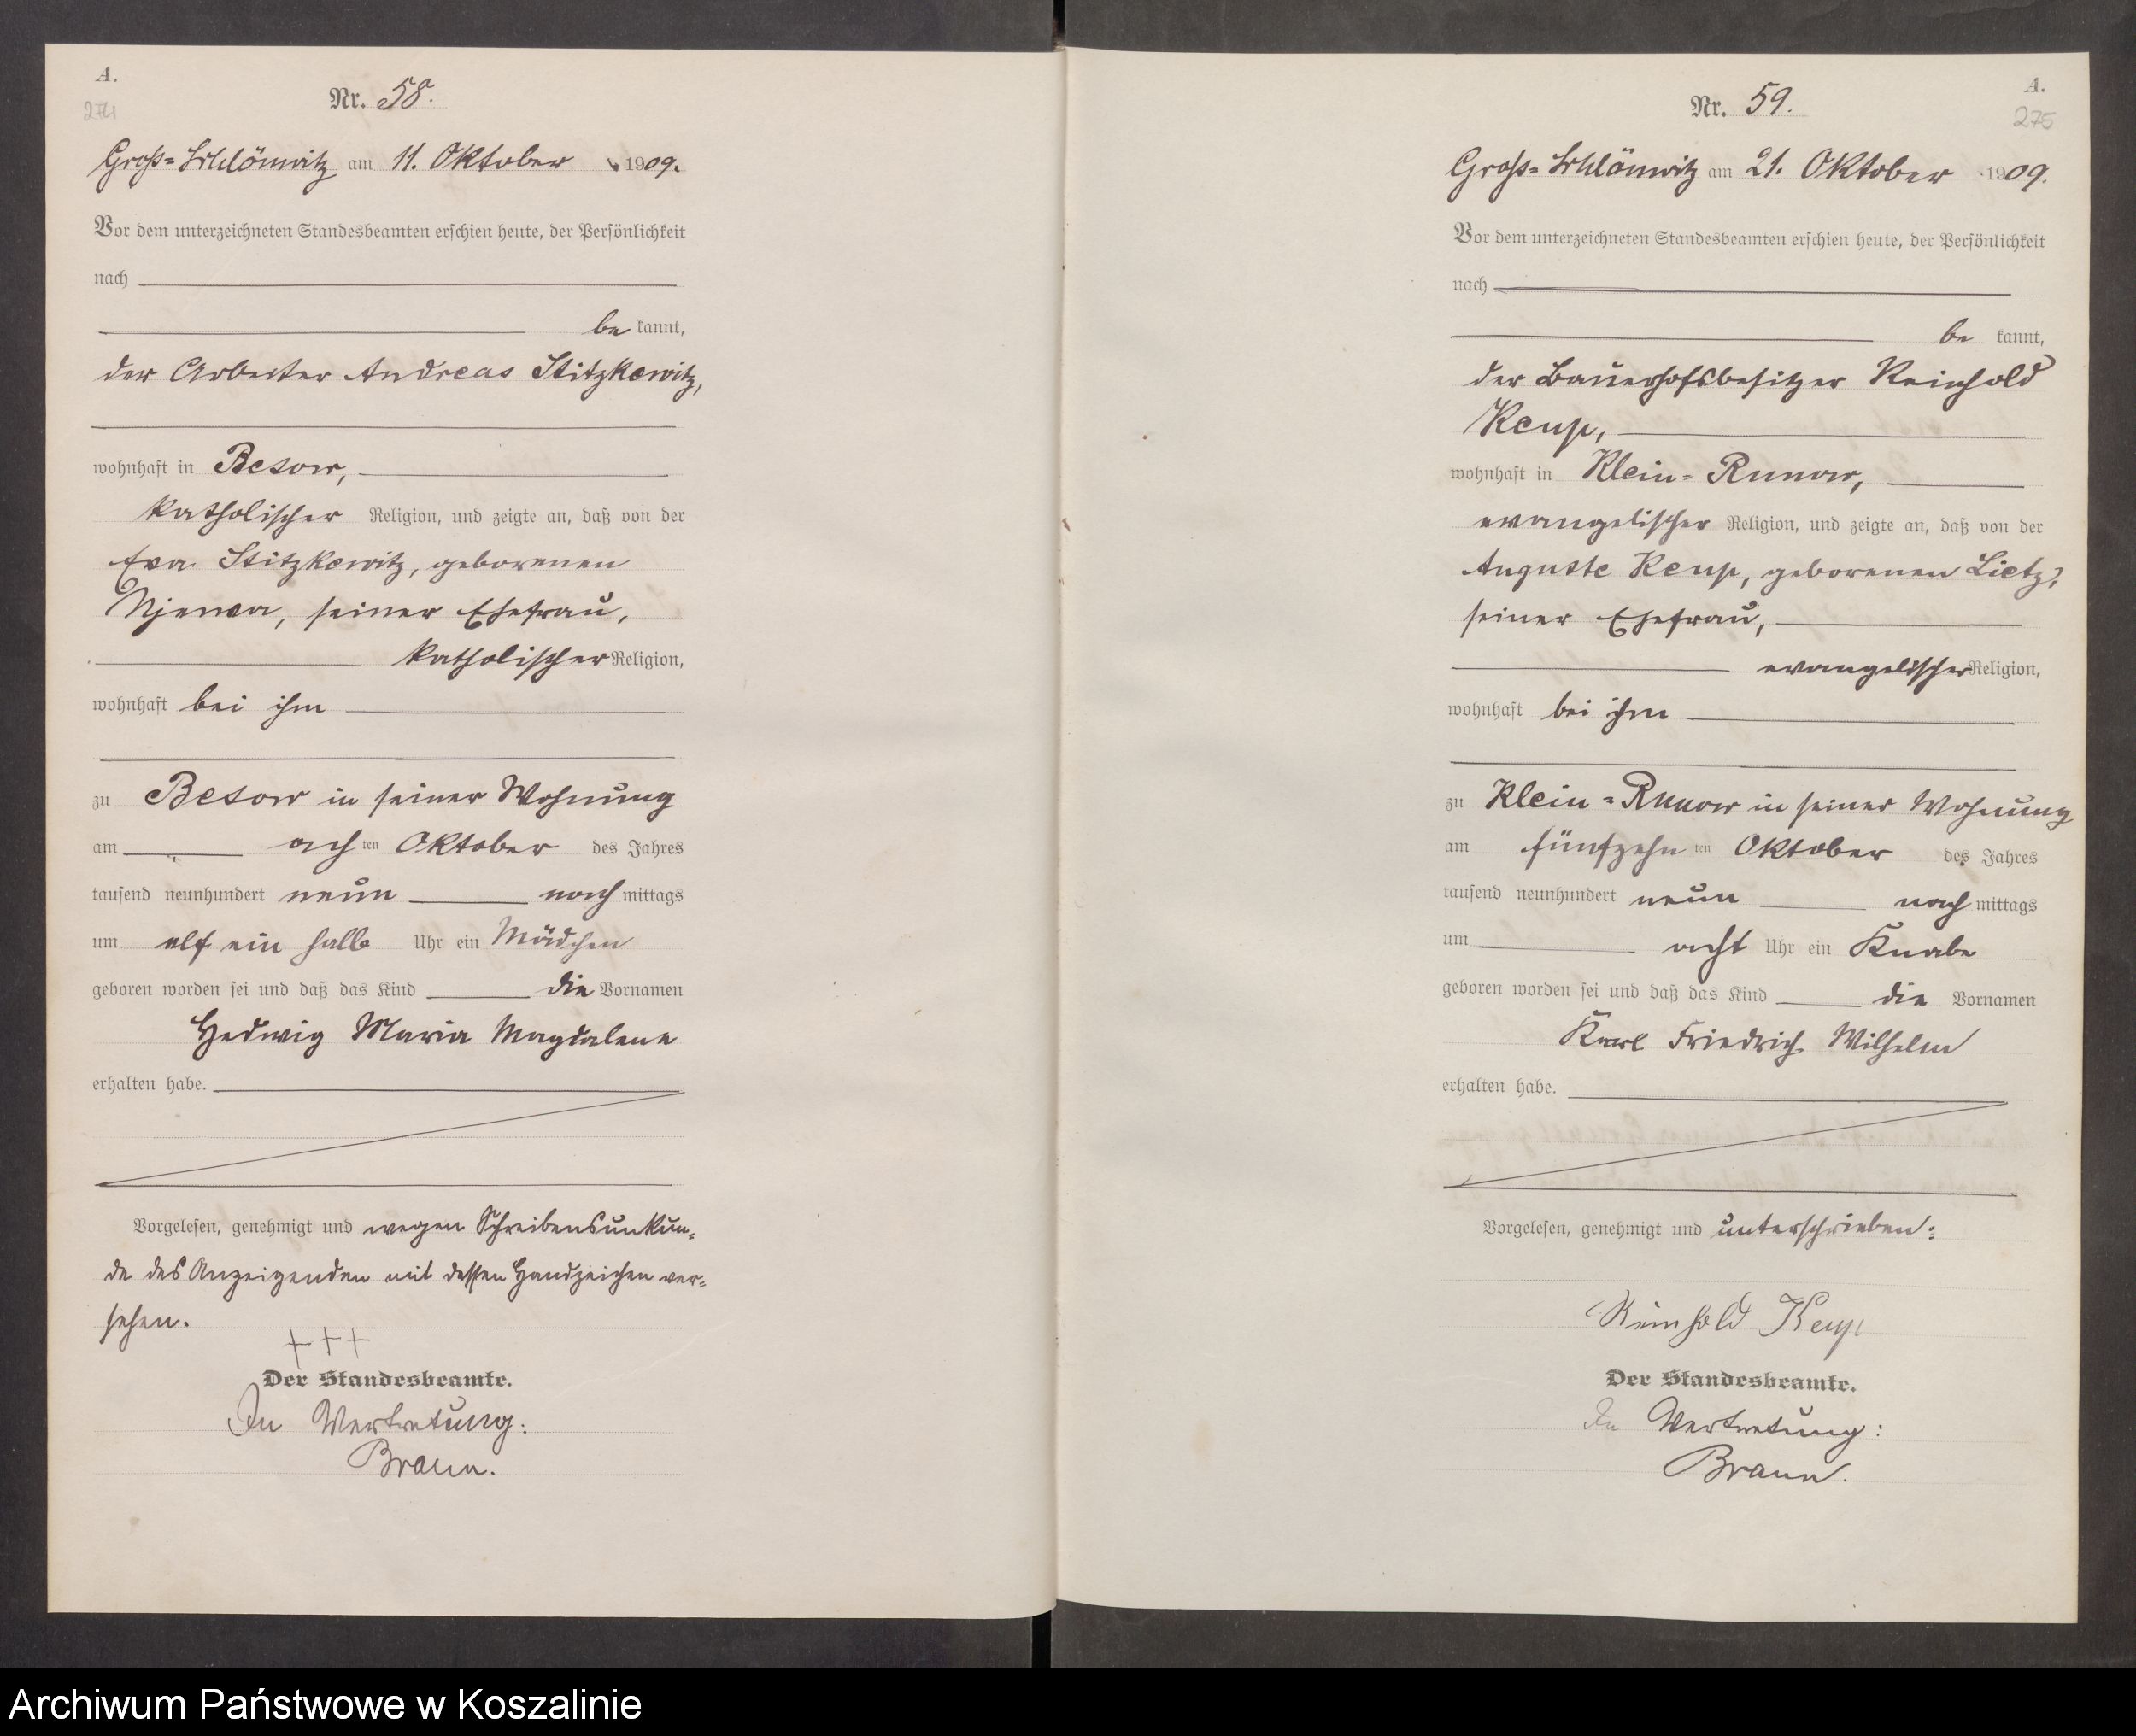 A.
274
Nr. 58.
Groß-Schlönwitz am 11. Oktober 1909.
Vor dem unterzeichneten Standesbeamten erschien heute, der Persönlichkeit
nach
be kannt,
der Arbeiter Andreas Stitzkewitz,
wohnhaft in Besow,
katholischer Religion, und zeigte an, daß von der
Eva Stitzkewitz, geborenen
seiner Ehefrau,
katholischer Religion,
wohnhaft bei ihm
zu Besow in seiner Wohnung
am achten Oktober des Jahres
tausend neunhundert neun nachmittags
um elf ein halb Uhr ein Mädchen
geboren worden sei und daß das Kind die Vornamen
Hedwig Maria Magdalene
erhalten habe.
Vorgelesen, genehmigt und wegen Schreibensunkun-
de des Anzeigenden mit dessen Handzeichen ver-
sehen.
+++
Der Standesbeamte.
In Vertretung:
Braun.
A.
275
Nr. 59.
Groß-Schlönwitz am 21. Oktober 1909.
Vor dem unterzeichneten Standesbeamten erschien heute, der Persönlichkeit
nach
be kannt,
der Bauerhofsbesitzer Reinhold
Keup,
wohnhaft in Klein-Runow,
evangelischer Religion, und zeigte an, daß von der
Auguste Keup, geborenen Lietz,
seiner Ehefrau,
evangelischer Religion,
wohnhaft bei ihm
zu Klein-Runow in seiner Wohnung
am fünfzehnten Oktober des Jahres
tausend neunhundert neun nachmittags
um acht Uhr ein Knabe
geboren worden sei und daß das Kind die Vornamen
Karl Friedrich Wilhelm
erhalten habe.
Vorgelesen, genehmigt und unterschrieben:
Reinhold Keup
Der Standesbeamte.
In Vertretung:
Braun.
Archiwum Państwowe w Koszalinie